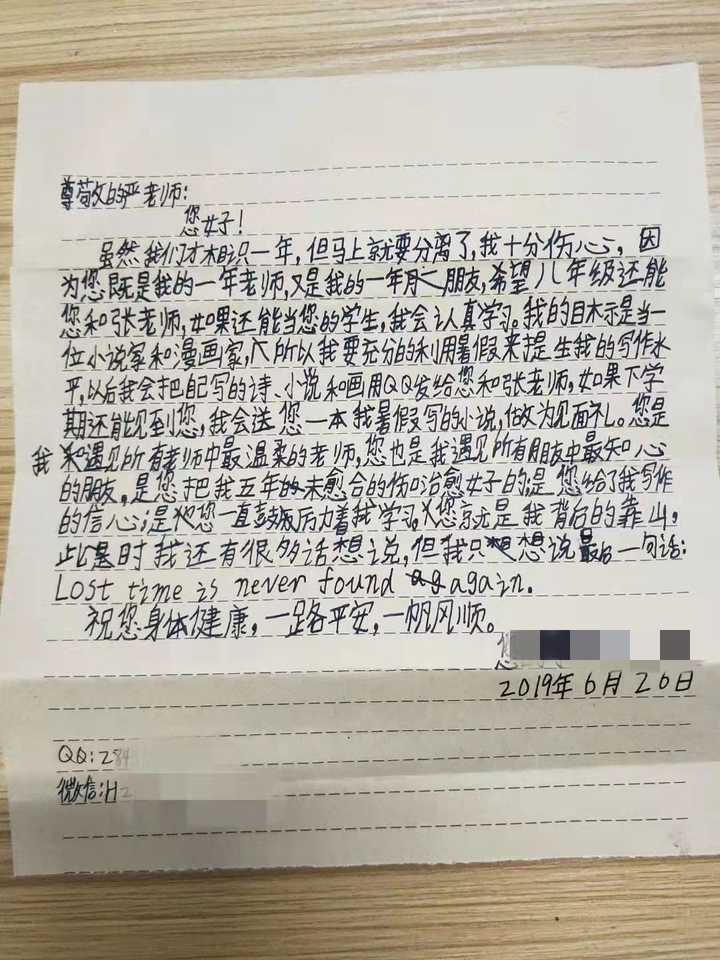 尊敬的严老师:
您好!
虽然我们才相识一年,但马上就要分离了,我十分伤心,因
为您既是我的一年老师,又是我的一年朋友,希望八年级还能
您和张老师,如果还能当您的学生,我会认真学习。我的目标是当一
位小说家和漫画家,所以我要充分的利用暑假来提生我的写作水
平,以后我会把自写的诗、小说和画用QQ发给您和张老师,如果下学
期还能见到您,我会送您一本我暑假写的小说,做为见面礼。您是
我遇见所有老师中最温柔的老师,您也是我遇见所有朋友中最知心
的朋友,是您把我五年的未愈合的伤口治愈好的;是您给了我写作
的信心;是您一直鼓励着我学习。您就是我背后的靠山,
此时我还有很多话想说,但我只想说最后一句话:
Lost time is never found again.
祝您身体健康,一路平安,一帆风顺。
您
2019年6月20日
QQ:284
微信:H2